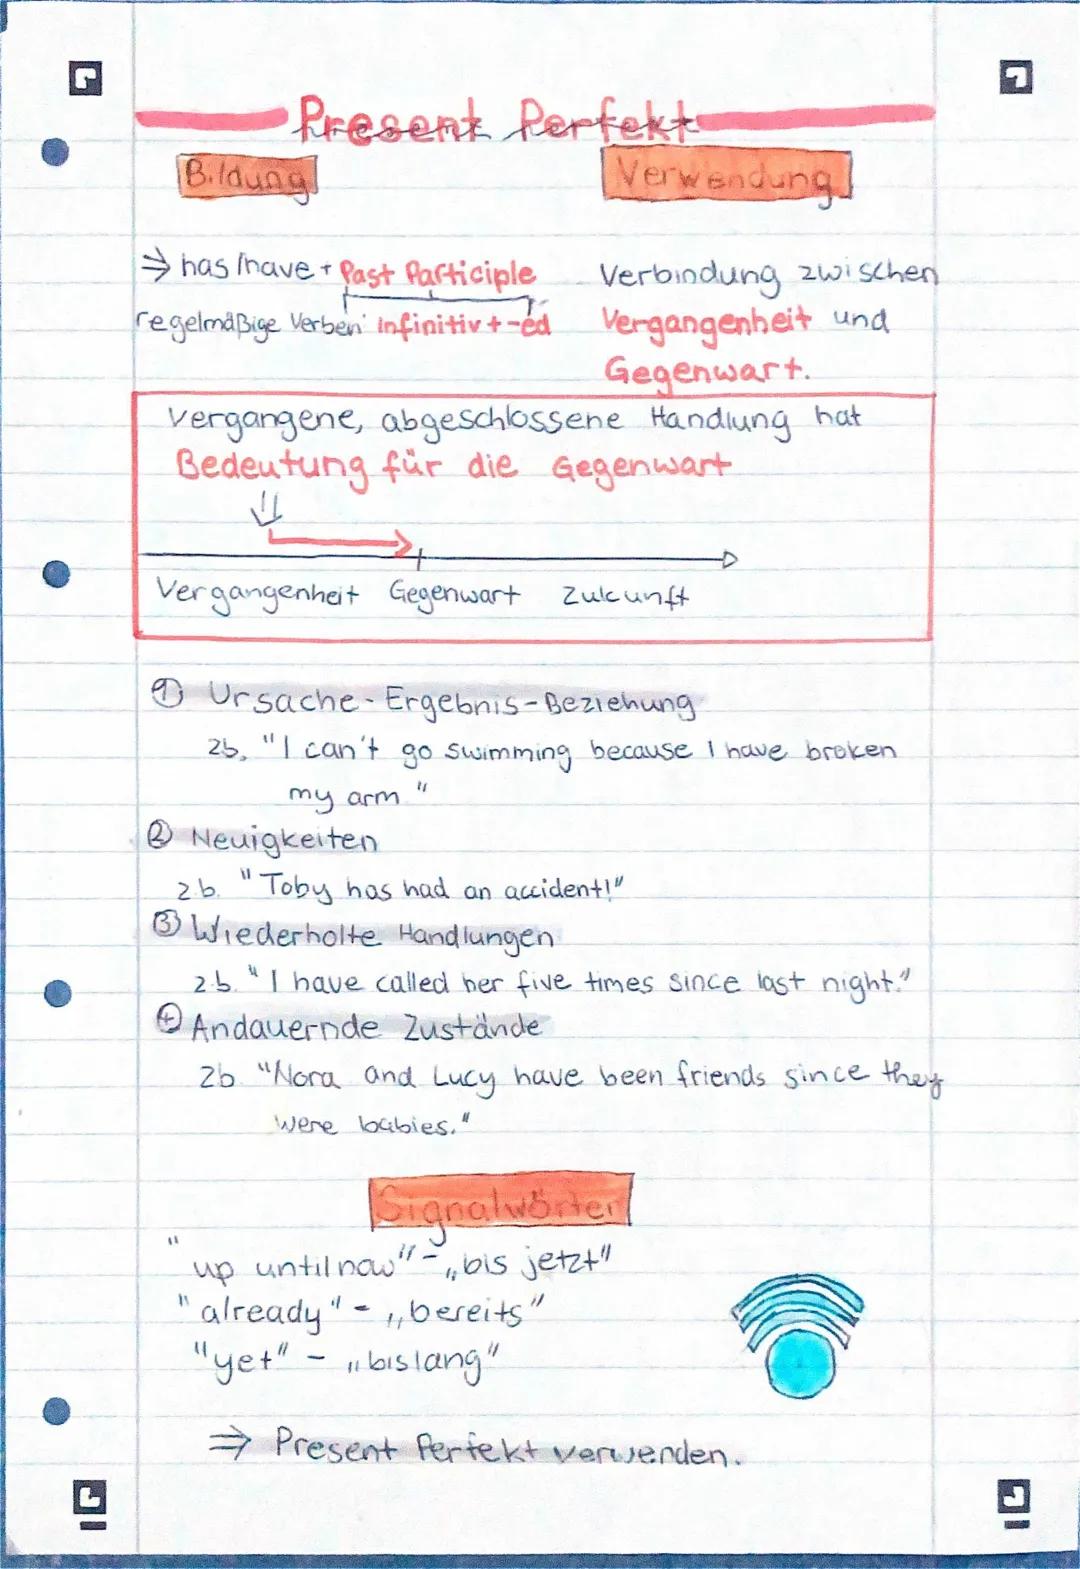 Present Perfekt
Bildung
Verwendung
⇒ has/have + Past Participle
regelmäßige Verben: infinitiv + -ed
Verbindung zwischen
Vergangenheit und
Gegenwart.
Vergangene, abgeschlossene Handlung hat
Bedeutung für die Gegenwart
Vergangenheit Gegenwart Zukunft
① Ursache-Ergebnis-Beziehung
zb. "I can't go swimming because I have broken
my arm."
② Neuigkeiten
z.b. "Toby has had an accident!"
③ Wiederholte Handlungen
z.b. "I have called her five times since last night."
④ Andauernde Zustände
zb. "Nora and Lucy have been friends since they
were babies."
Signalwörter
"up until now" - „bis jetzt"
"already" - „bereits"
"yet" - „bislang"
⇒ Present Perfekt verwenden.